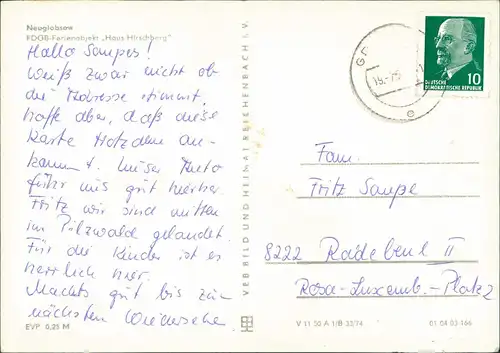 Neuglobsow
FDGB-Ferienobjekt „Haus Hirschberg"
Hallo Saupes!
Weiß zwar nicht ob
die Adresse stimmt,
hoffe aber, daß diese
Karte trotzdem an-
kommt. Unser Auto
fuhr uns gut hierher.
Fritz wir sind mitten
im Pilzwald gelandet.
Für die Kinder ist es
herrlich hier.
Machts gut bis zum
nächsten Wiedersehn
EVP 0,25 M
VEB BILD UND HEIMAT REICHENBACH i. V.
DEUTSCHE 10
DEMOKRATISCHE REPUBLIK
Fam.
Fritz Saupe
8222 Radebeul II
Rosa-Luxemb.-Platz 2
V 11 50 A 1/B 33/74 01 04 03 166